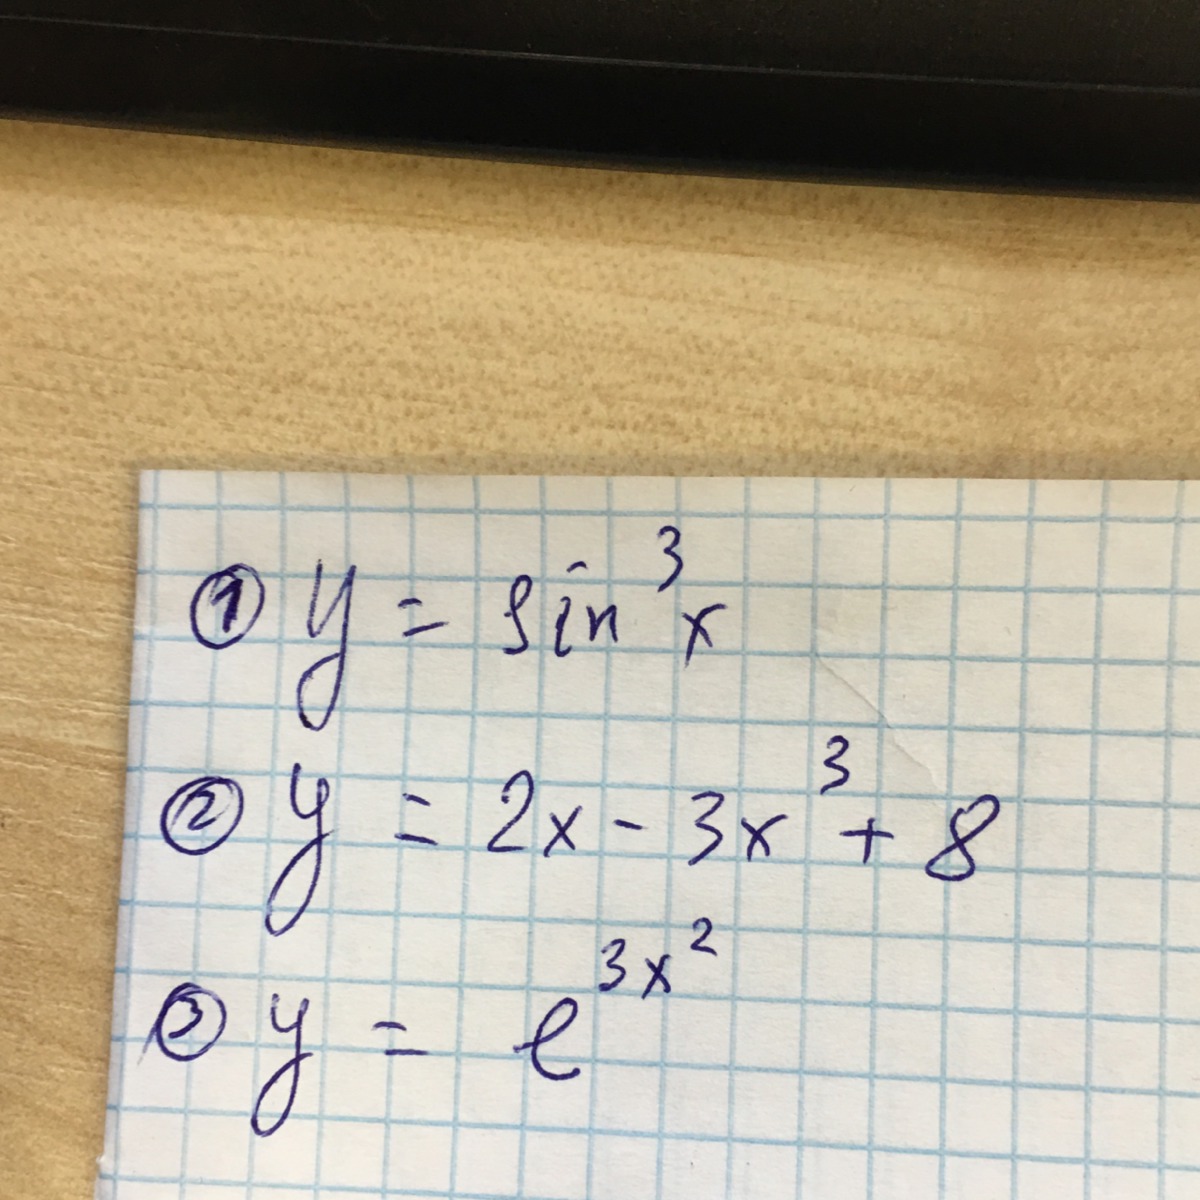 ① y = sin³x
② y = 2x - 3x³ + 8
③ y = e^{3x²}